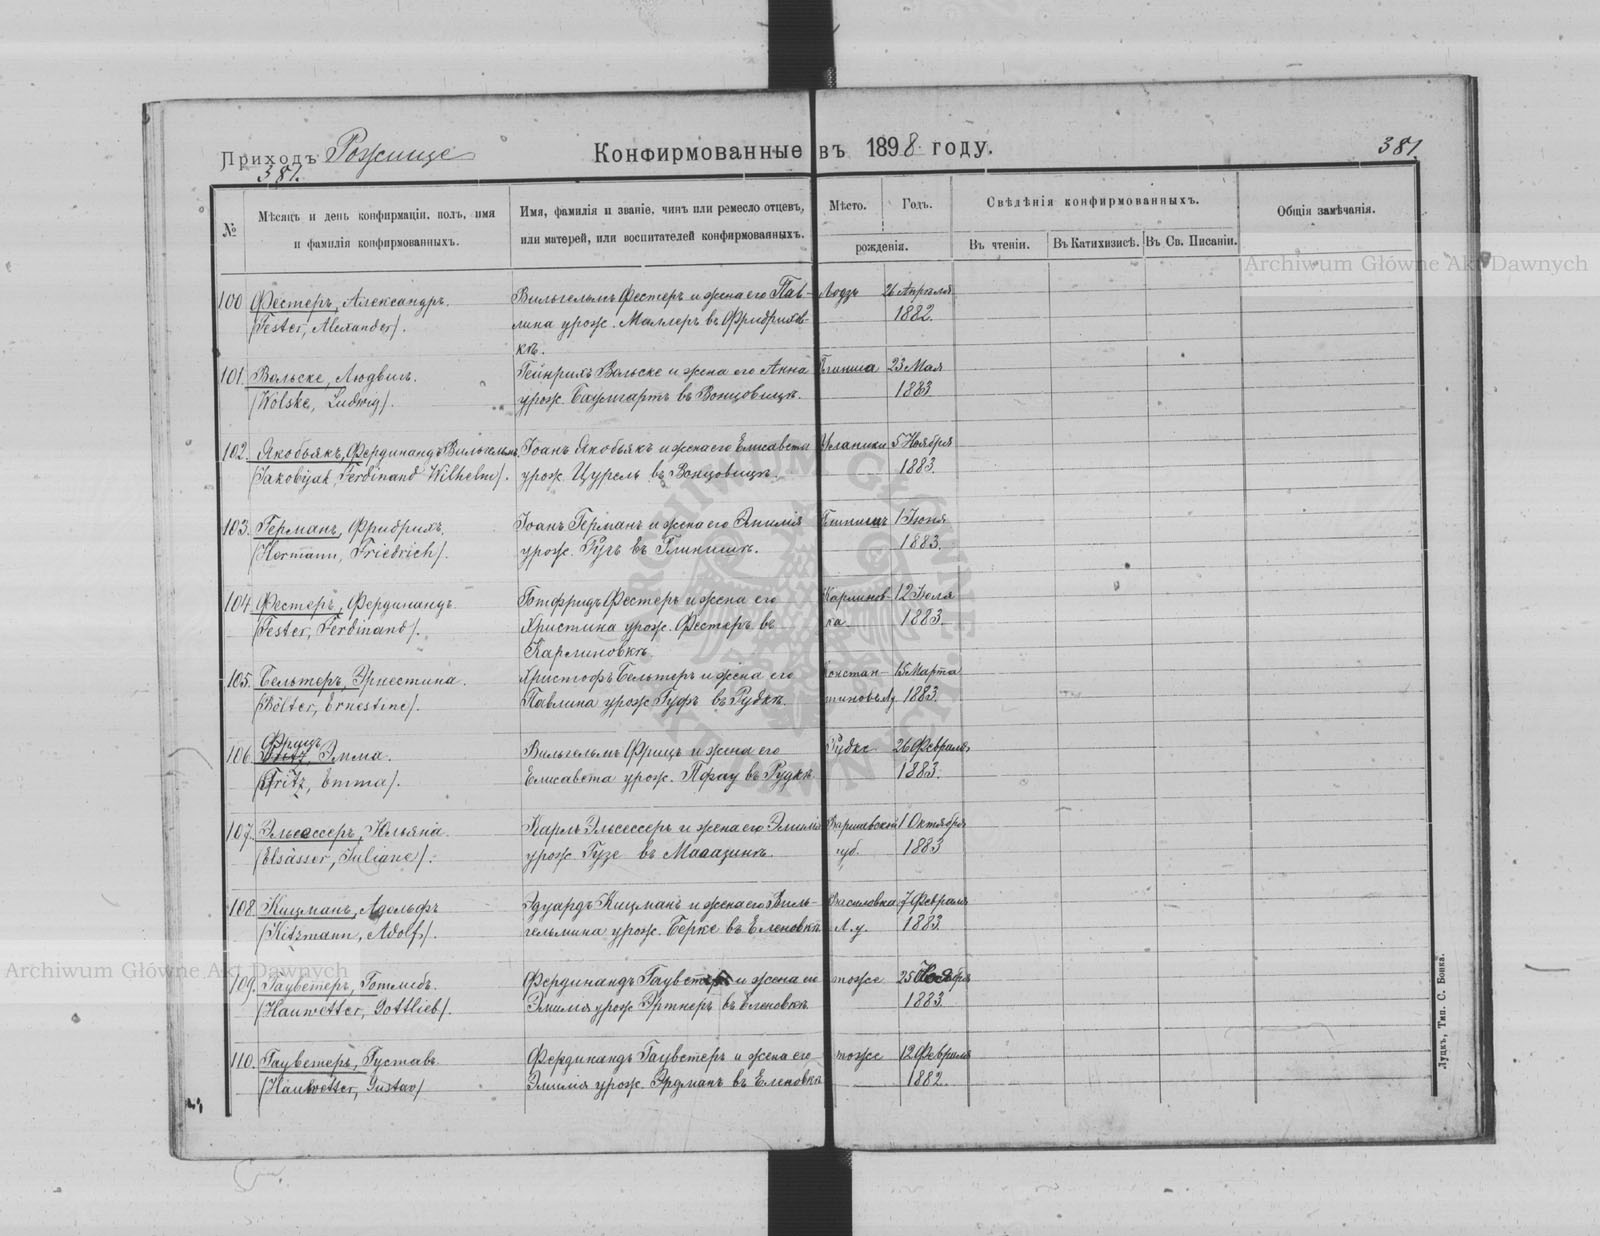 Приходъ Рожище
Конфирмованные въ 1898 году.
381.
381.
№
Мѣсяцъ и день конфирмаціи, полъ, имя
и фамилія конфирмованныхъ.
Имя, фамилія и званіе, чинъ или ремесло отцевъ,
или матерей, или воспитателей конфирмованныхъ.
Мѣсто.
Годъ.
рожденія.
Свѣдѣнія конфирмованныхъ.
Въ чтеніи.
Въ Катихизисѣ.
Въ Св. Писаніи.
Общія замѣчанія.
100 Фестеръ, Александръ. Вильгельмъ Фестеръ и жена его Пав- Лодзь 26 Апрѣля
(Fester, Alexander). лина урож. Миллеръ въ Фридрихов- 1882.
кѣ.
101. Вольске, Людвигъ. Гейнрихъ Вольске и жена его Анна 23 Мая
(Wolske, Ludwig). урож. Баумгартъ въ Вонцовицѣ. 1883
102. Якобьякъ, Фердинандъ Вильгельмъ. Іоанъ Якобьякъ и жена его Елисавета 5 Ноября
(Jakobjak Ferdinand Wilhelm). урож. Цурель въ Вонцовицѣ. 1883.
103. Германъ, Фридрихъ. Іоанъ Германъ и жена его Эмилія Глинищъ 1 Іюня
(Hermann, Friedrich). урож. Гугъ въ Глинищѣ. 1883.
104. Фестеръ, Фердинандъ. Готфридъ Фестеръ и жена его Карлинов- 12 Іюля
(Fester, Ferdinand). Христина урож. Фестеръ въ ка 1883.
Карлиновкѣ.
105. Бельтеръ, Эрнестина. Христофъ Бельтеръ и жена его Констан- 15 Марта
(Bölter, Ernestine). Павлина урож. Гуфъ въ Рудкѣ. тиновъ 1883.
Фрицъ
106. Эмма. Вильгельмъ Фрицъ и жена его Рудкѣ 26 Февраля
(Fritz, Emma). Елисавета урож. Пфау въ Рудкѣ 1883.
107. Эльсессеръ, Юльяна. Карлъ Эльсессеръ и жена его Эмилія Варшавской 1 Октября
(Elsässer, Juliane). урож. Гузе въ губ. 1883
108. Кицманъ, Адольфъ Эдуардъ Кицманъ и жена его Виль- Василовка 7 Февраля
(Kitzmann, Adolf). гельмина урож. Берке въ Еленовкѣ Л. у. 1883.
109. Гауветеръ, Готлибъ. Фердинандъ Гауветеръ и жена его тоже 25 Ноября
(Hauwetter, Gottlieb). Эмилія урож. Эртнеръ въ Еленовкѣ. 1883.
110. Гауветеръ, Густавъ. Фердинандъ Гауветеръ и жена его тоже 12 Февраля
(Hauwetter, Gustav) Эмилія урож. Эрдманъ въ Еленовкѣ 1882.
Луцкъ, Тип. С. Бонка.
Archiwum Główne Akt Dawnych
Archiwum Główne Akt Dawnych